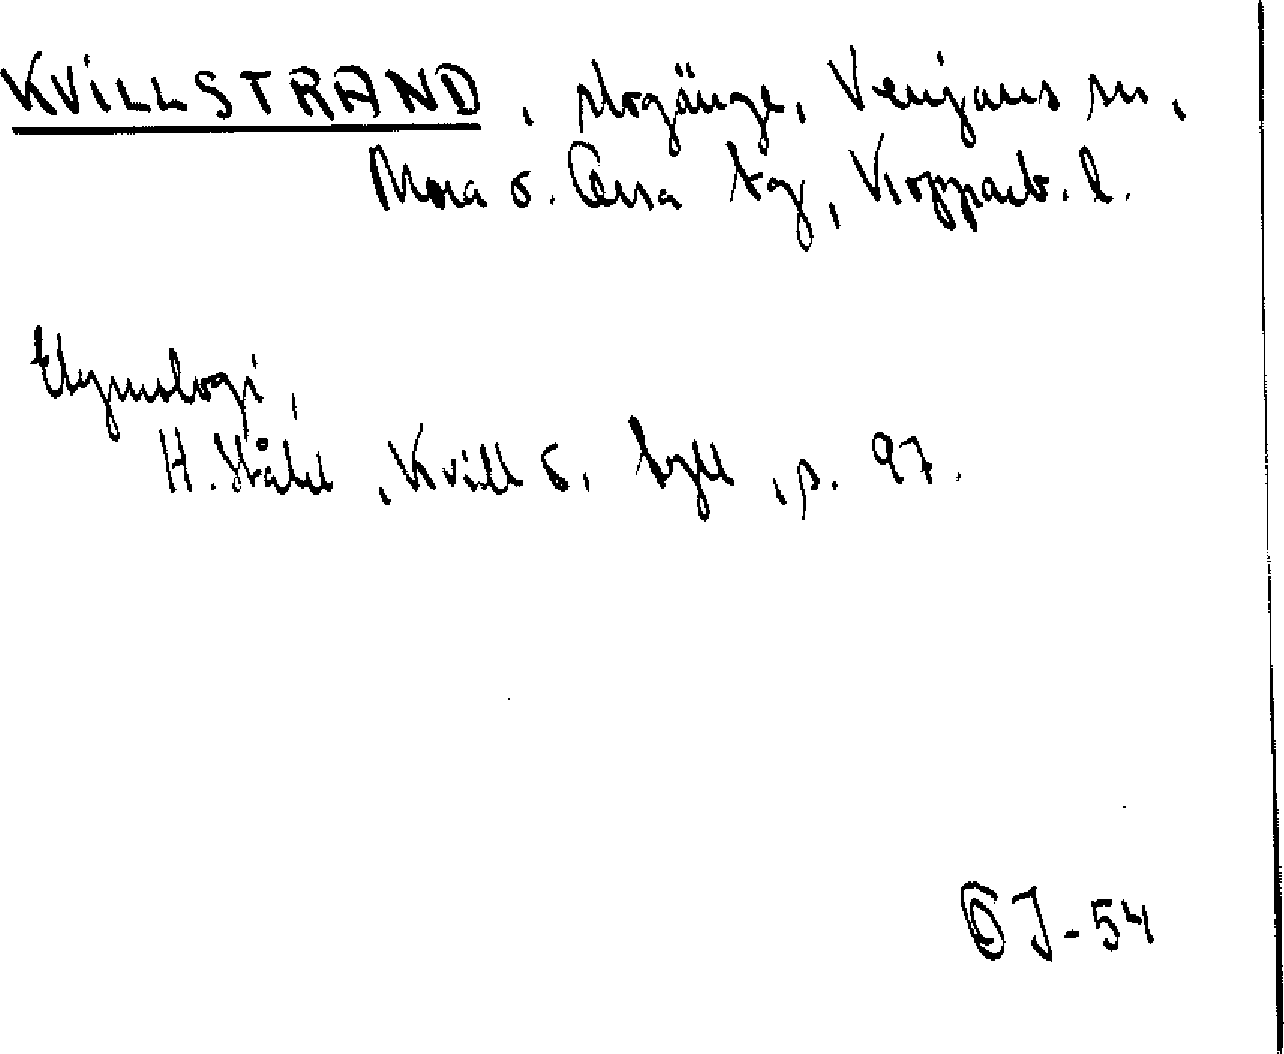 KVILLSTRAND, slogänge, Venjans sn,
Mora o. Orsa tg, Kopparb. l.
Etymologi,
H. Ståhl, Kvill o. tyll, p. 97.
OJ-54